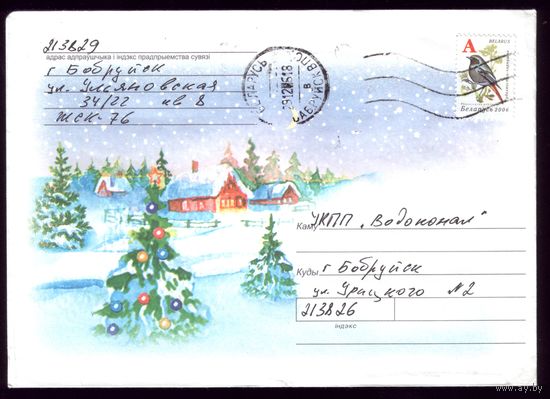 213829
адрас адпраўшчыка і індэкс прадпрыемства сувязі
г Бобруйск
ул. Ульяновская
34/22 кв 8
ЖСК-76
БЕЛАРУСЬ
291206 18
В
A
BELARUS
Беларусь 2006
Каму УКПП „Водоканал"
Куды г Бобруйск
ул. Урицкого №2
213826
індэкс
www.ay.by